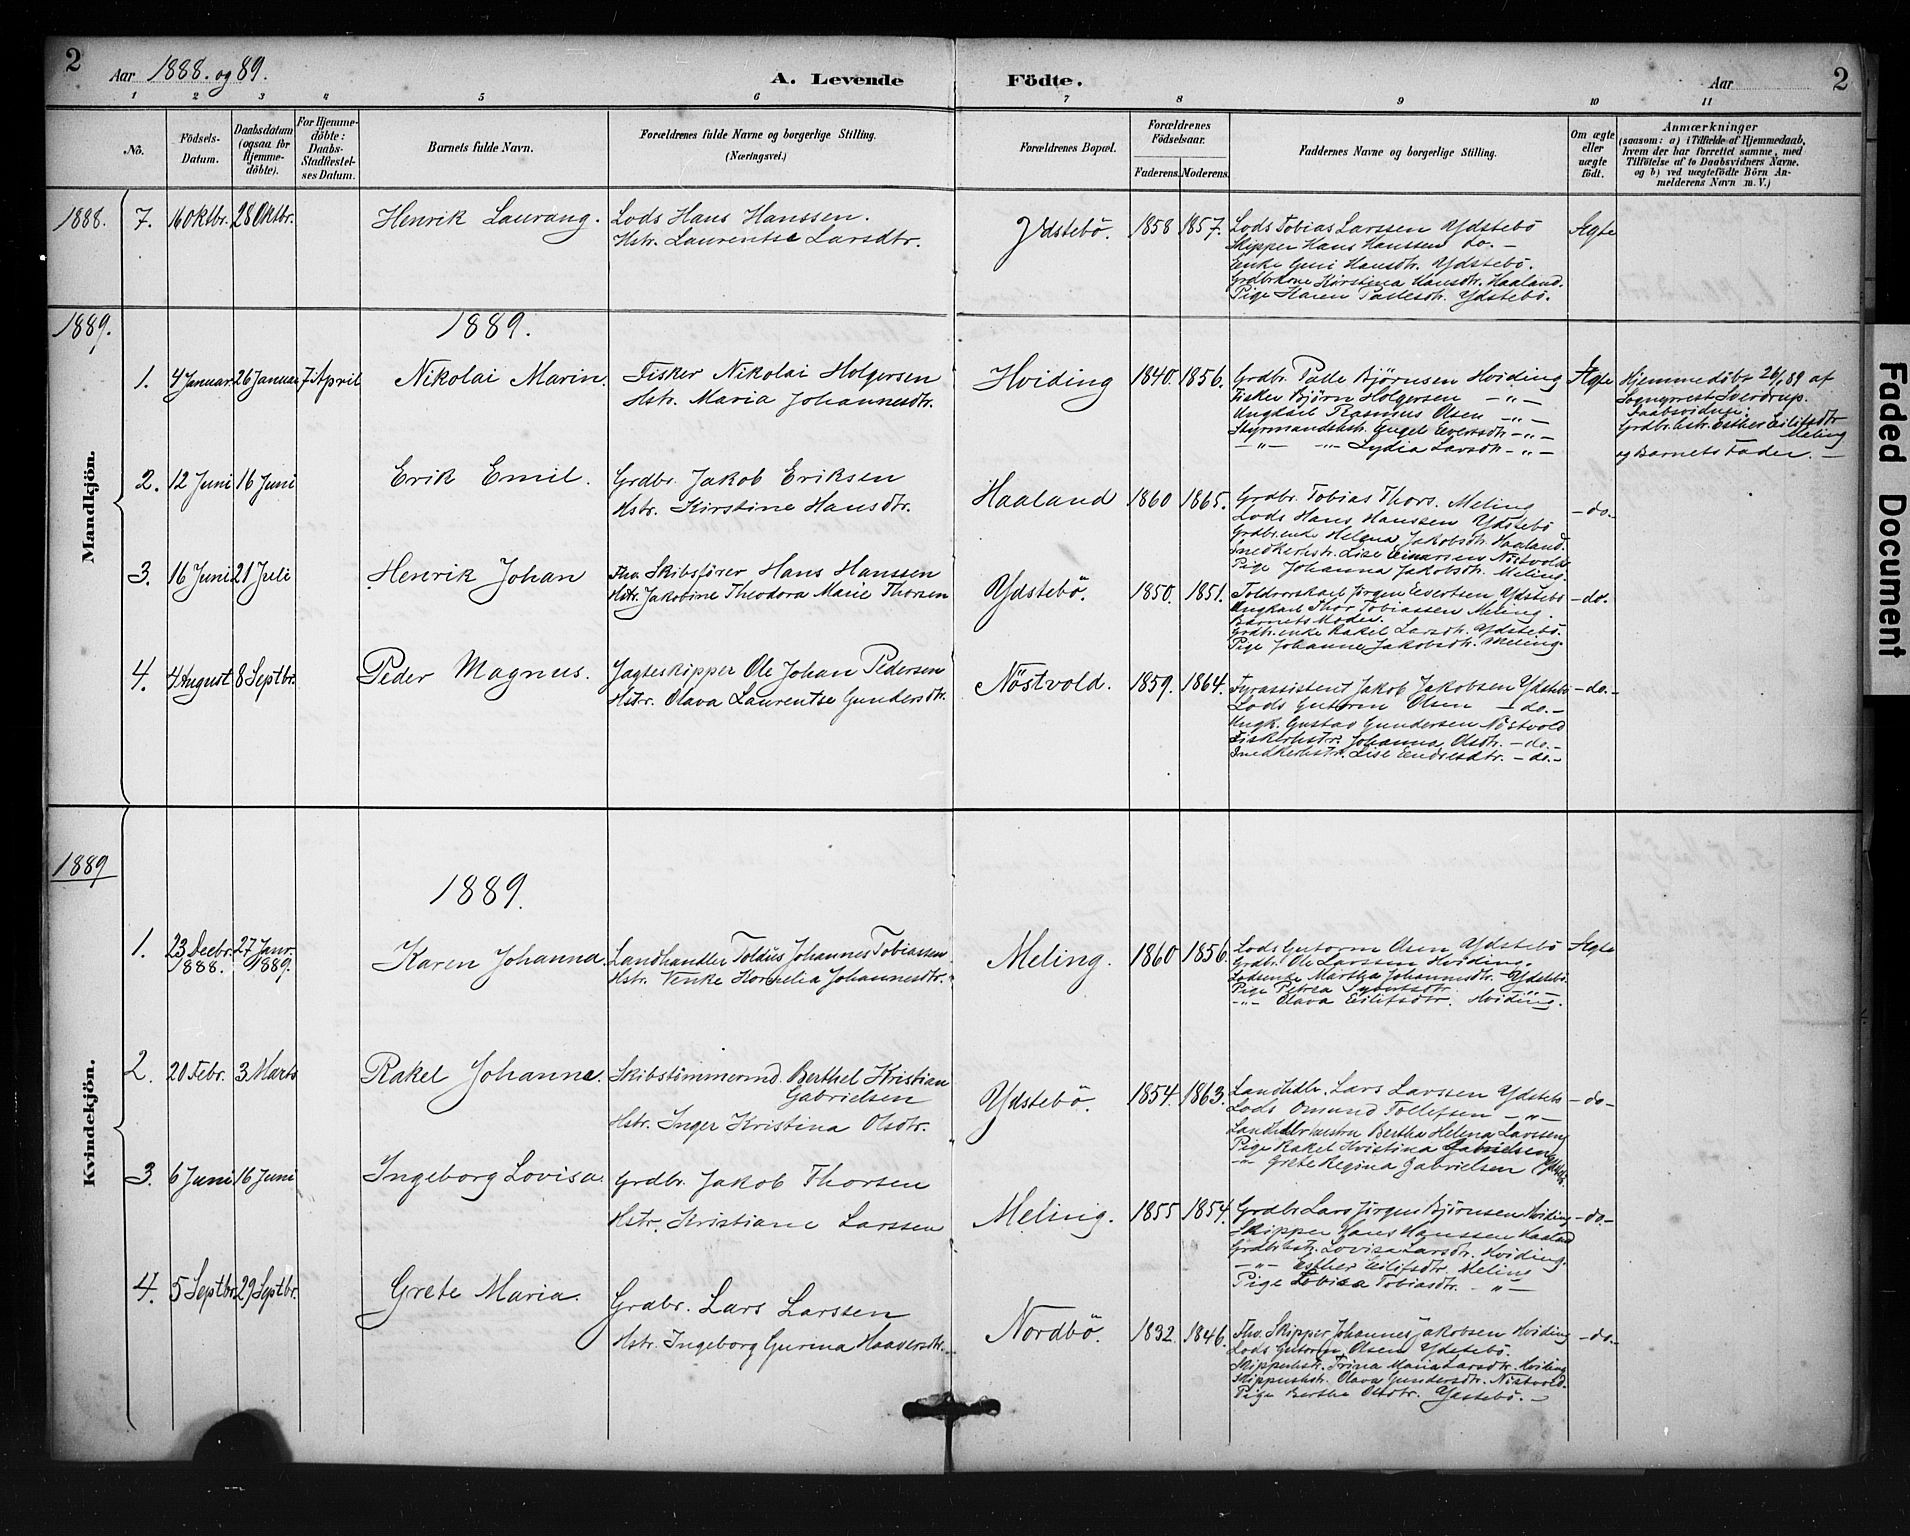 2
Aar 1888. og 89.
A. Levende Födte.
Aar
2
1 2 3 4 5 6 7 8 9 10 11
No.
Födsels-Datum.
Daabsdatum (ogsaa for Hjemmedöbte).
For Hjemmedöbte: Daabs-Stadfæstelses Datum.
Barnets fulde Navn.
Forældrenes fulde Navne og borgerlige Stilling.
(Næringsvei.)
Forældrenes Bopæl.
Forældrenes Födselsaar.
Faderens. Moderens.
Faddernes Navne og borgerlige Stilling.
Om ægte eller uægte födt.
Anmærkninger
(saasom: a) i Tilfælde af Hjemmedaab,
hvem der har forrettet samme, med
Tilföielse af to Daabsvidners Navne.
og b) ved uægtefödte Börn An-
melderens Navn m. V.)
1888. 7. 16 Oktbr. 28 Oktbr. Henrik Laurang.
Lods Hans Hanssen.
Hstr. Laurentse Larsdtr.
Ydstebö. 1858 1857.
Lods Tobias Larssen Ydstebö
Skipper Hans Hanssen do. -
Enke Guri Hansdtr. Ydstebö.
Grdbrkone Kirstina Hansdtr. Haaland.
Pige Karen Pallesdtr. Ydstebö.
Ægte
1889.
Mandkjön.
1889.
1. 4 Januar 26 Januar 7 April Nikolai Marin.
Fisker Nikolai Holgersen
Hstr. Maria Johannesdtr.
Hviding 1840. 1856.
Grdbr. Palle Björnsen Hviding
Fisker Björn Holgersen - " -
Ungkarl Rasmus Olsen - " -
Styrmandshstr. Engel Evertsdtr - " -
- " - - " - Lydia Larsdtr - " -
Ægte
Hjemmedöbt 26/1 89 af
Sogneprest Sverdrup.
Daabsvidner:
Grdbr.hstr. Esther Eilifsdtr
Meling
og Barnets Fader. -
2. 12 Juni 16 Juni Erik Emil.
Grdbr. Jakob Eriksen
Hstr. Kirstine Hansdtr.
Haaland 1860 1865.
Grdbr. Tobias Thors. Meling
Lods Hans Hanssen Ydstebö
Grdbr.enke Helena Jakobsdtr. Haaland.
Snedkerhstr. Lise Einarsen Nöstvold
Pige Johanna Jakobsdtr. Meling.
- do. -
3. 16 Juni 21 Juli Henrik Johan
Fhv. Skibsförer Hans Hanssen
Hstr. Jakobine Theodora Marie Thorsen
Ydstebö. 1850. 1851.
Toldrorskarl Jörgen Evertsen Ydstebö
Ungkarl Thor Tobiassen Meling.
Barnets Moder.
Grdbr.enke Rakel Larsdtr. Ydstebö.
Pige Johanne Jakobsdtr. Meling.
- do. -
4. 4 August 8 Septbr. Peder Magnus.
Jagteskipper Ole Johan Pedersen
Hstr. Olava Laurentse Gundersdtr.
Nöstvold. 1859. 1864.
Fyrassistent Jakob Jakobsen Ydstebö
Lods Gutorm Olsen - do. -
Ungk. Gustav Gundersen Nöstvold
Fiskerhstr. Johanna Olsdtr. - do. -
Snedkerhstr. Lise Endresdtr. - do. -
- do. -
1889
Kvindekjön.
1889.
1. 23 Decbr. 1888. 27 Janr. 1889. Karen Johanna.
Landhandler Toldus Johannes Tobiassen
Hstr. Venke Kornelia Johannesdtr.
Meling. 1860 1856.
Lods Gutorm Olsen Ydstebö
Grdbr. Ole Larssen Hviding.
Lodsenke Martha Johannesdtr. Ydstebö.
Pige Petrea Sybertsdtr - " -
- " - Olava Eilifsdtr. Hviding.
Ægte
2. 20 Febr. 3 Marts Rakel Johanne.
Skibstimmermd. Berthel Kristian
Gabrielsen
Hstr. Inger Kristina Olsdtr.
Ydstebö. 1854. 1863.
Landhdlr. Lars Larssen Ydstebö
Lods Omund Tollefsen - " -
Landhdlrhustru Bertha Helena Larssen
Pige Rakel Kristina Gabrielsen
- " - Grete Regina Gabrielsen Ydstebö.
- do -
3. 6 Juni 16 Juni Ingeborg Lovisa
Grdbr. Jakob Thorsen
Hstr. Kristiane Larssen
Meling. 1855 1854.
Grdbr. Lars Jörgen Björnsen Hviding
Skipper Hans Hanssen Haaland
Grdbr.hstr. Lovisa Larsdtr. Hviding.
- " - Esther Eilifsdtr. Meling
Pige Lovisa Tobiasdtr. - " -
- do. -
4. 5 Septbr. 29 Septbr. Grete Maria.
Grdbr. Lars Larssen
Hstr. Ingeborg Gurina Haaversdtr.
Nordbö. 1832. 1846.
Fhv. Skipper Johannes Jakobsen Hviding
Lods Gutorm Olsen Ydstebö.
Skipperhstr. Trina Maria Larsdtr. Hviding
Skipperhstr. Olava Gundersdtr. Nöstvold.
Pige Berthe Olsdtr. Ydstebö. -
- do. -
Faded Document